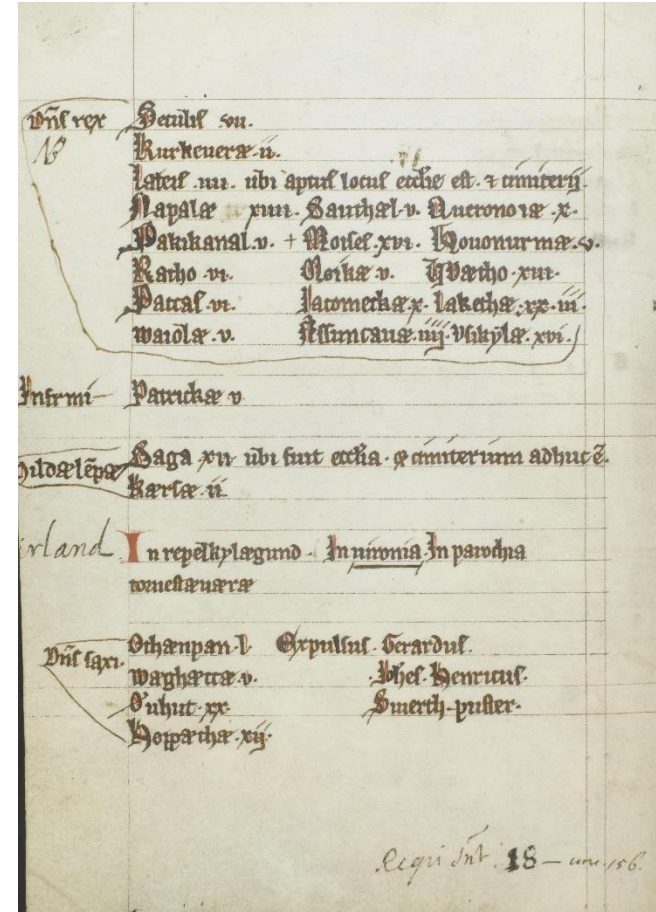 Dn̄s rex Setulis .vii.
N̄ Kurkeueræ .ii.
Lateis .iiii. ubi aptus locus eccl̄ie est . ⁊ cimiterij.
Napalæ xiiii. Sauthæl . v. Queronoiæ . x.
Pakikanal . v. + Moises . xvi. Houonurmæ . v.
Ratho . vi. Oloikæ v. Waetho . xiii.
Pattas . vi. Iacomeckæ . x. Lakethæ . xx . iii.
waiolæ . v. Assuncauæ . iiij. Usikylæ . xvi.
Infirmi Patrickæ v
Hildælēpæ Saga xii ubi fuit eccl̄ia . & cimiterium adhuc ē.
Kærsæ . ii
In repelkylægund . In uironia In parochia
toruestæuæræ
Dn̄s saxi. Othænpan . l Expulsus . Gerardus.
waghættæ . v. Joh̄es . Henricus.
Ouhut . xx.
Horpæthæ . xij.
18 — 156.